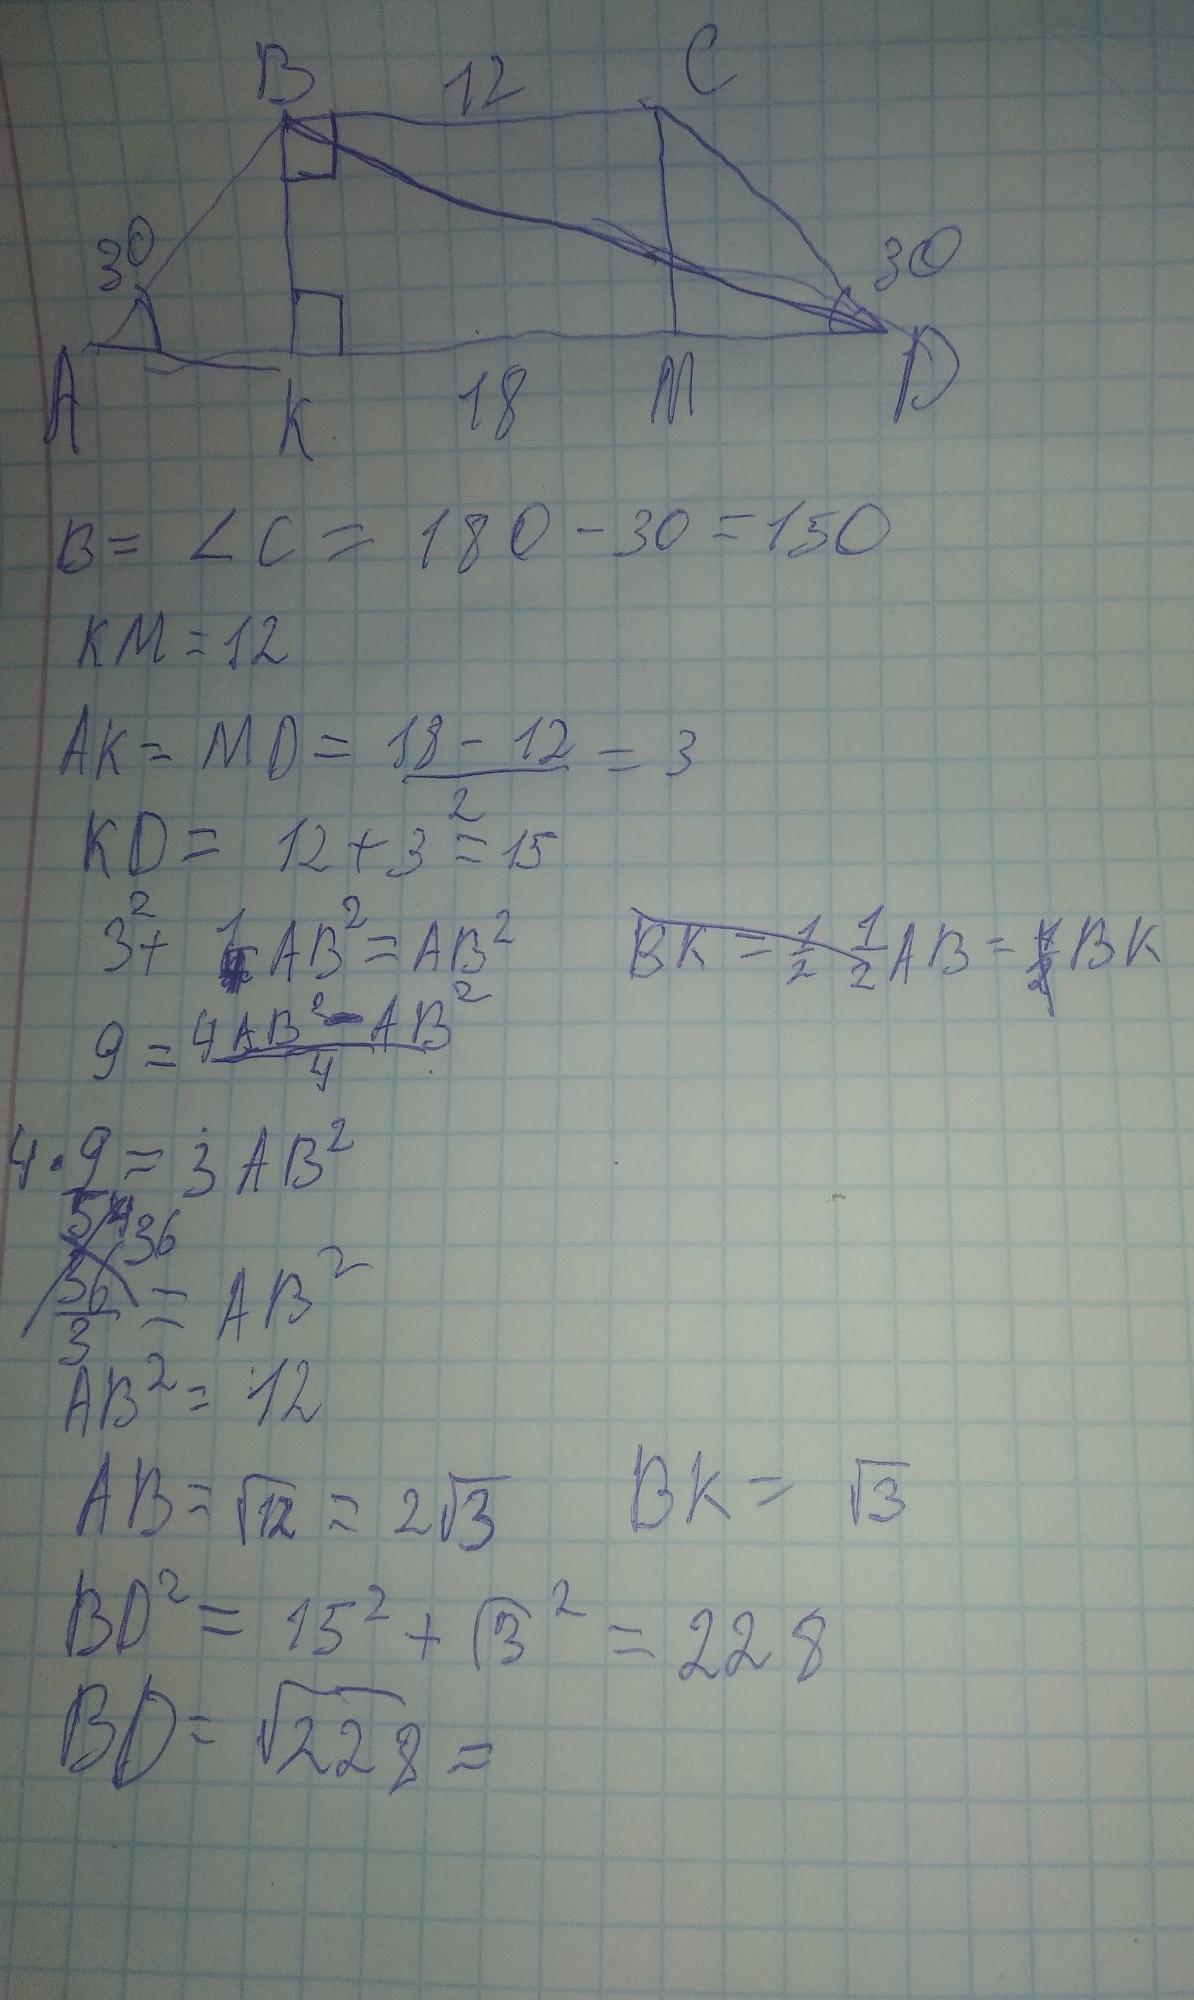 B 12 C
30 30
A K 18 M D
B = ∠C = 180 - 30 = 150
KM = 12
AK = MD = (18 - 12)/2 = 3
KD = 12 + 3 = 15
3² + 1/4 AB² = AB² BK = 1/2 1/2 AB = BK
9 = (4AB² - AB²)/4
4 · 9 = 3 AB²
36
36/3 = AB²
AB² = 12
AB = √12 = 2√3 BK = √3
BD² = 15² + √3² = 228
BD = √228 =